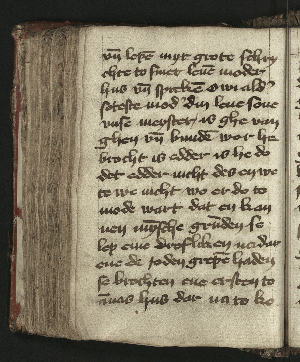 vn̄ lepē myt grote schry
chte to syner leuē moder
hus vn̄ sprekē O wi aldʾ
soteste mod' din leue sone
vnse meyster is ghe van
ghen vn̄ bundē wor he
brocht is edder is he do
det edder nicht des en we
te we nicht wo er do to
mode wart dat en kan
nen mysche grūden se
lep eme droflikē na dar
ene de joden grepē hadden
se brochten ene ersten to
annas hus dar na to ke